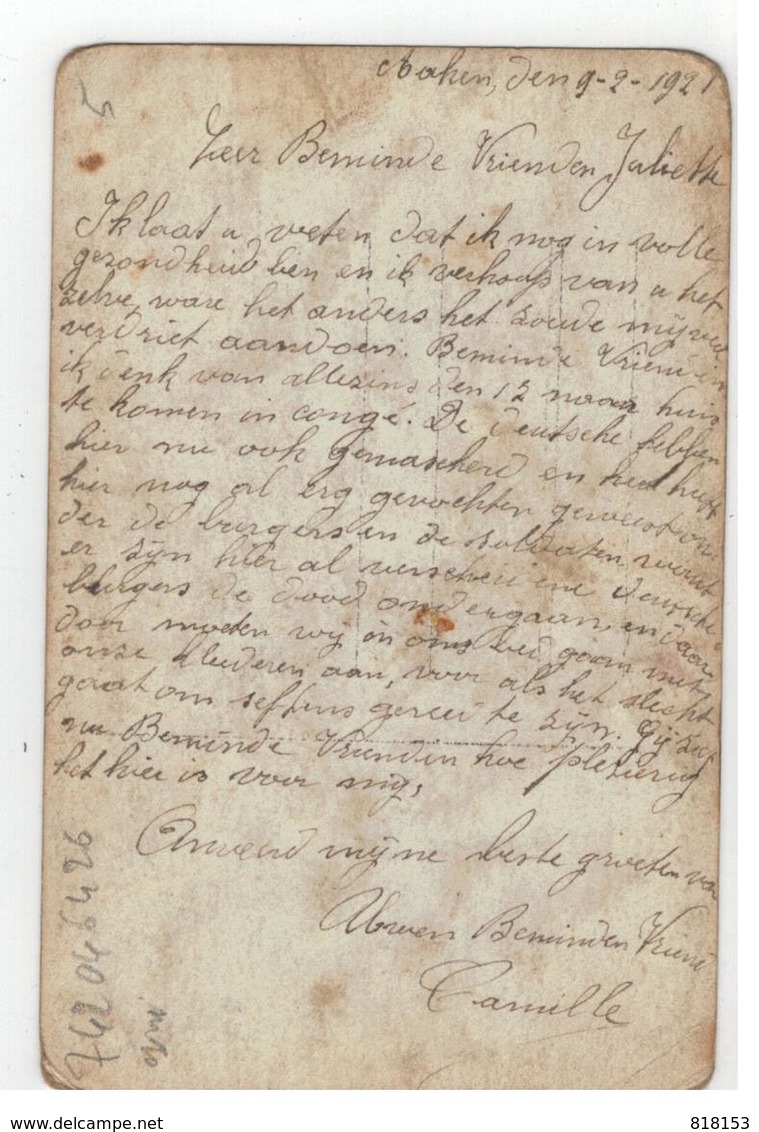 Aaken, den 9-2-1921
Zeer Beminde Vrienden Juliette
Ik laat u weten dat ik nog in volle
gezondheid ben en ik verhoop van u het
zelve, ware het anders het zoude mij veel
verdriet aandoen. Beminde Vriendin
ik denk van allezins den 12 naar huis
te komen in congé. De deutsche hebben
hier nu ook gemascherd en hed heeft
hier nog al erg gevochten geweest on
der de burgers en de soldaten, want
er zijn hier al verscheidene deutsche
burgers de dood ondergaan, en daar
door moeten wij in ons bed gaan met
onze kleederen aan, voor als het slecht
gaat om seffens gereed te zijn. Gij ziet
nu Beminde Vriendin hoe plezierig
het hier is voor mij,
Anveerd mijne beste groeten van
Uwen Beminden Vriend
Camille
5
742046426
m10
www.delcampe.net
818153